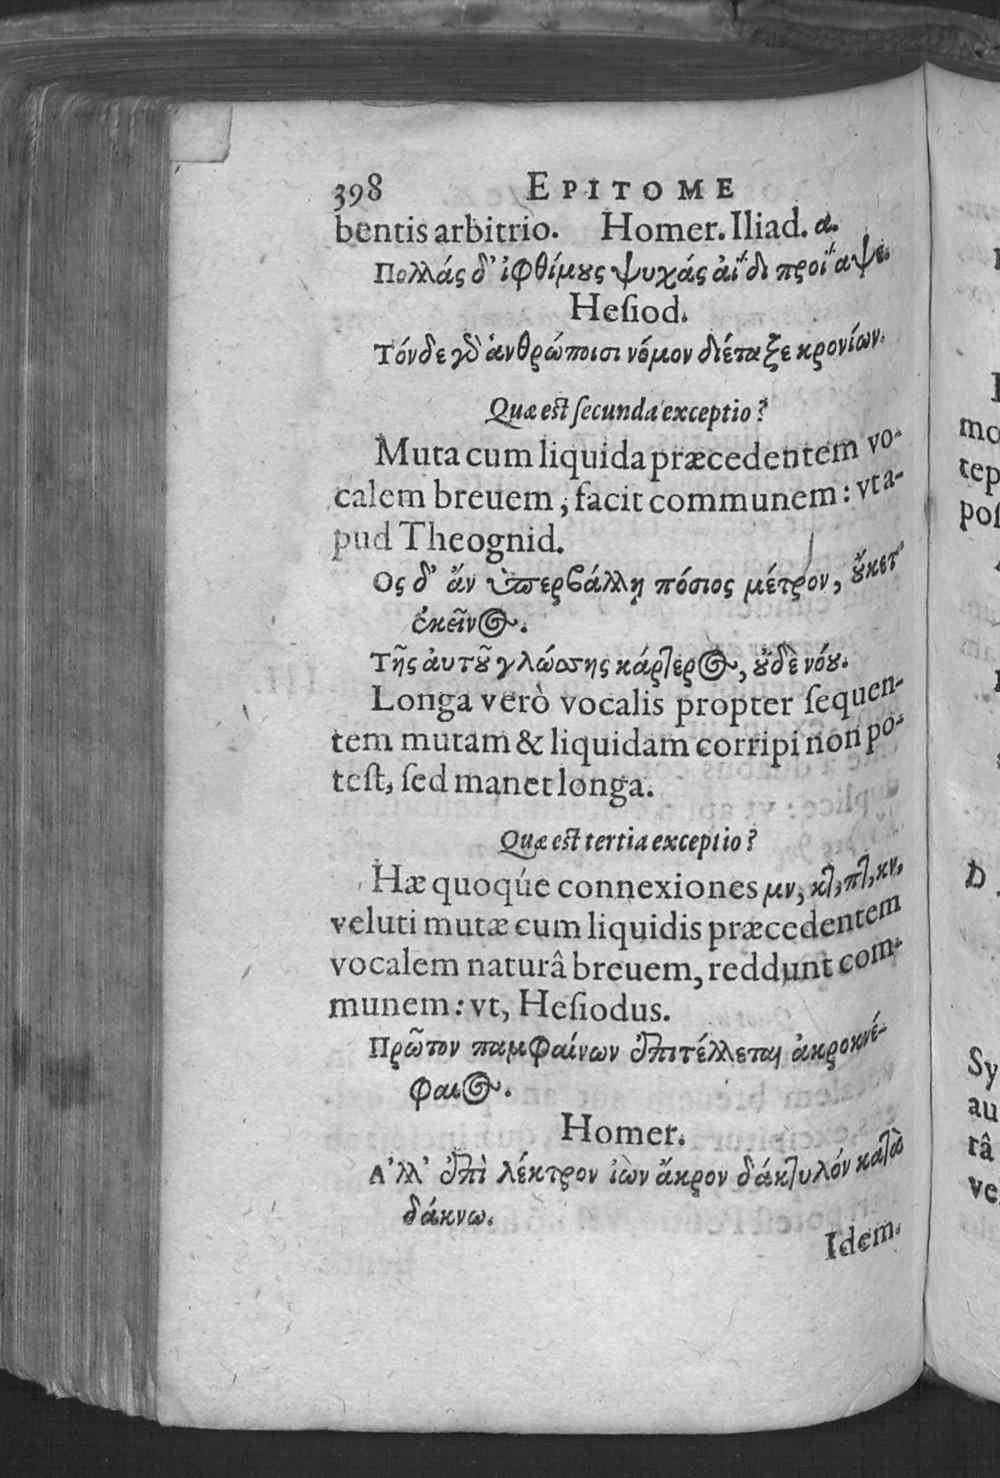 398 EPITOME
bentis arbitrio. Homer. Iliad. α.
Πολλάς δ' ἰφθίμους ψυχάς ἀΐδι προΐαψε.
Hesiod.
Τόνδε γδ ἀνθρώποισι νόμον διέταξε κρονίων.
Quæ est secunda exceptio?
Muta cum liquida præcedentem vo-
calem breuem, facit communem: vt a-
pud Theognid.
Ος δ' ἄν ὑπερβάλλῃ πόσιος μέτρον, οὔκετ'
ἐκεῖνος.
Τῆς ἀυτοῦ γλώσσης κάρτερος, οὐδὲ νόου.
Longa verò vocalis propter sequen-
tem mutam & liquidam corripi non po-
test, sed manet longa.
Quæ est tertia exceptio?
Hæ quoqúe connexiones μν, κτ, πτ, κν,
veluti mutæ cum liquidis præcedentem
vocalem naturâ breuem, reddunt com-
munem: vt, Hesiodus.
Πρῶτον παμφαίνων ἐπιτέλλεται ἀκροκνέ-
φαιος.
Homer.
Αλλ' ἐπὶ λέκτρον ἰὼν ἄκρον δάκτυλόν κατὰ
δάκνω.
Idem.
mo
tep
pos
D
Sy
au
râ
ve